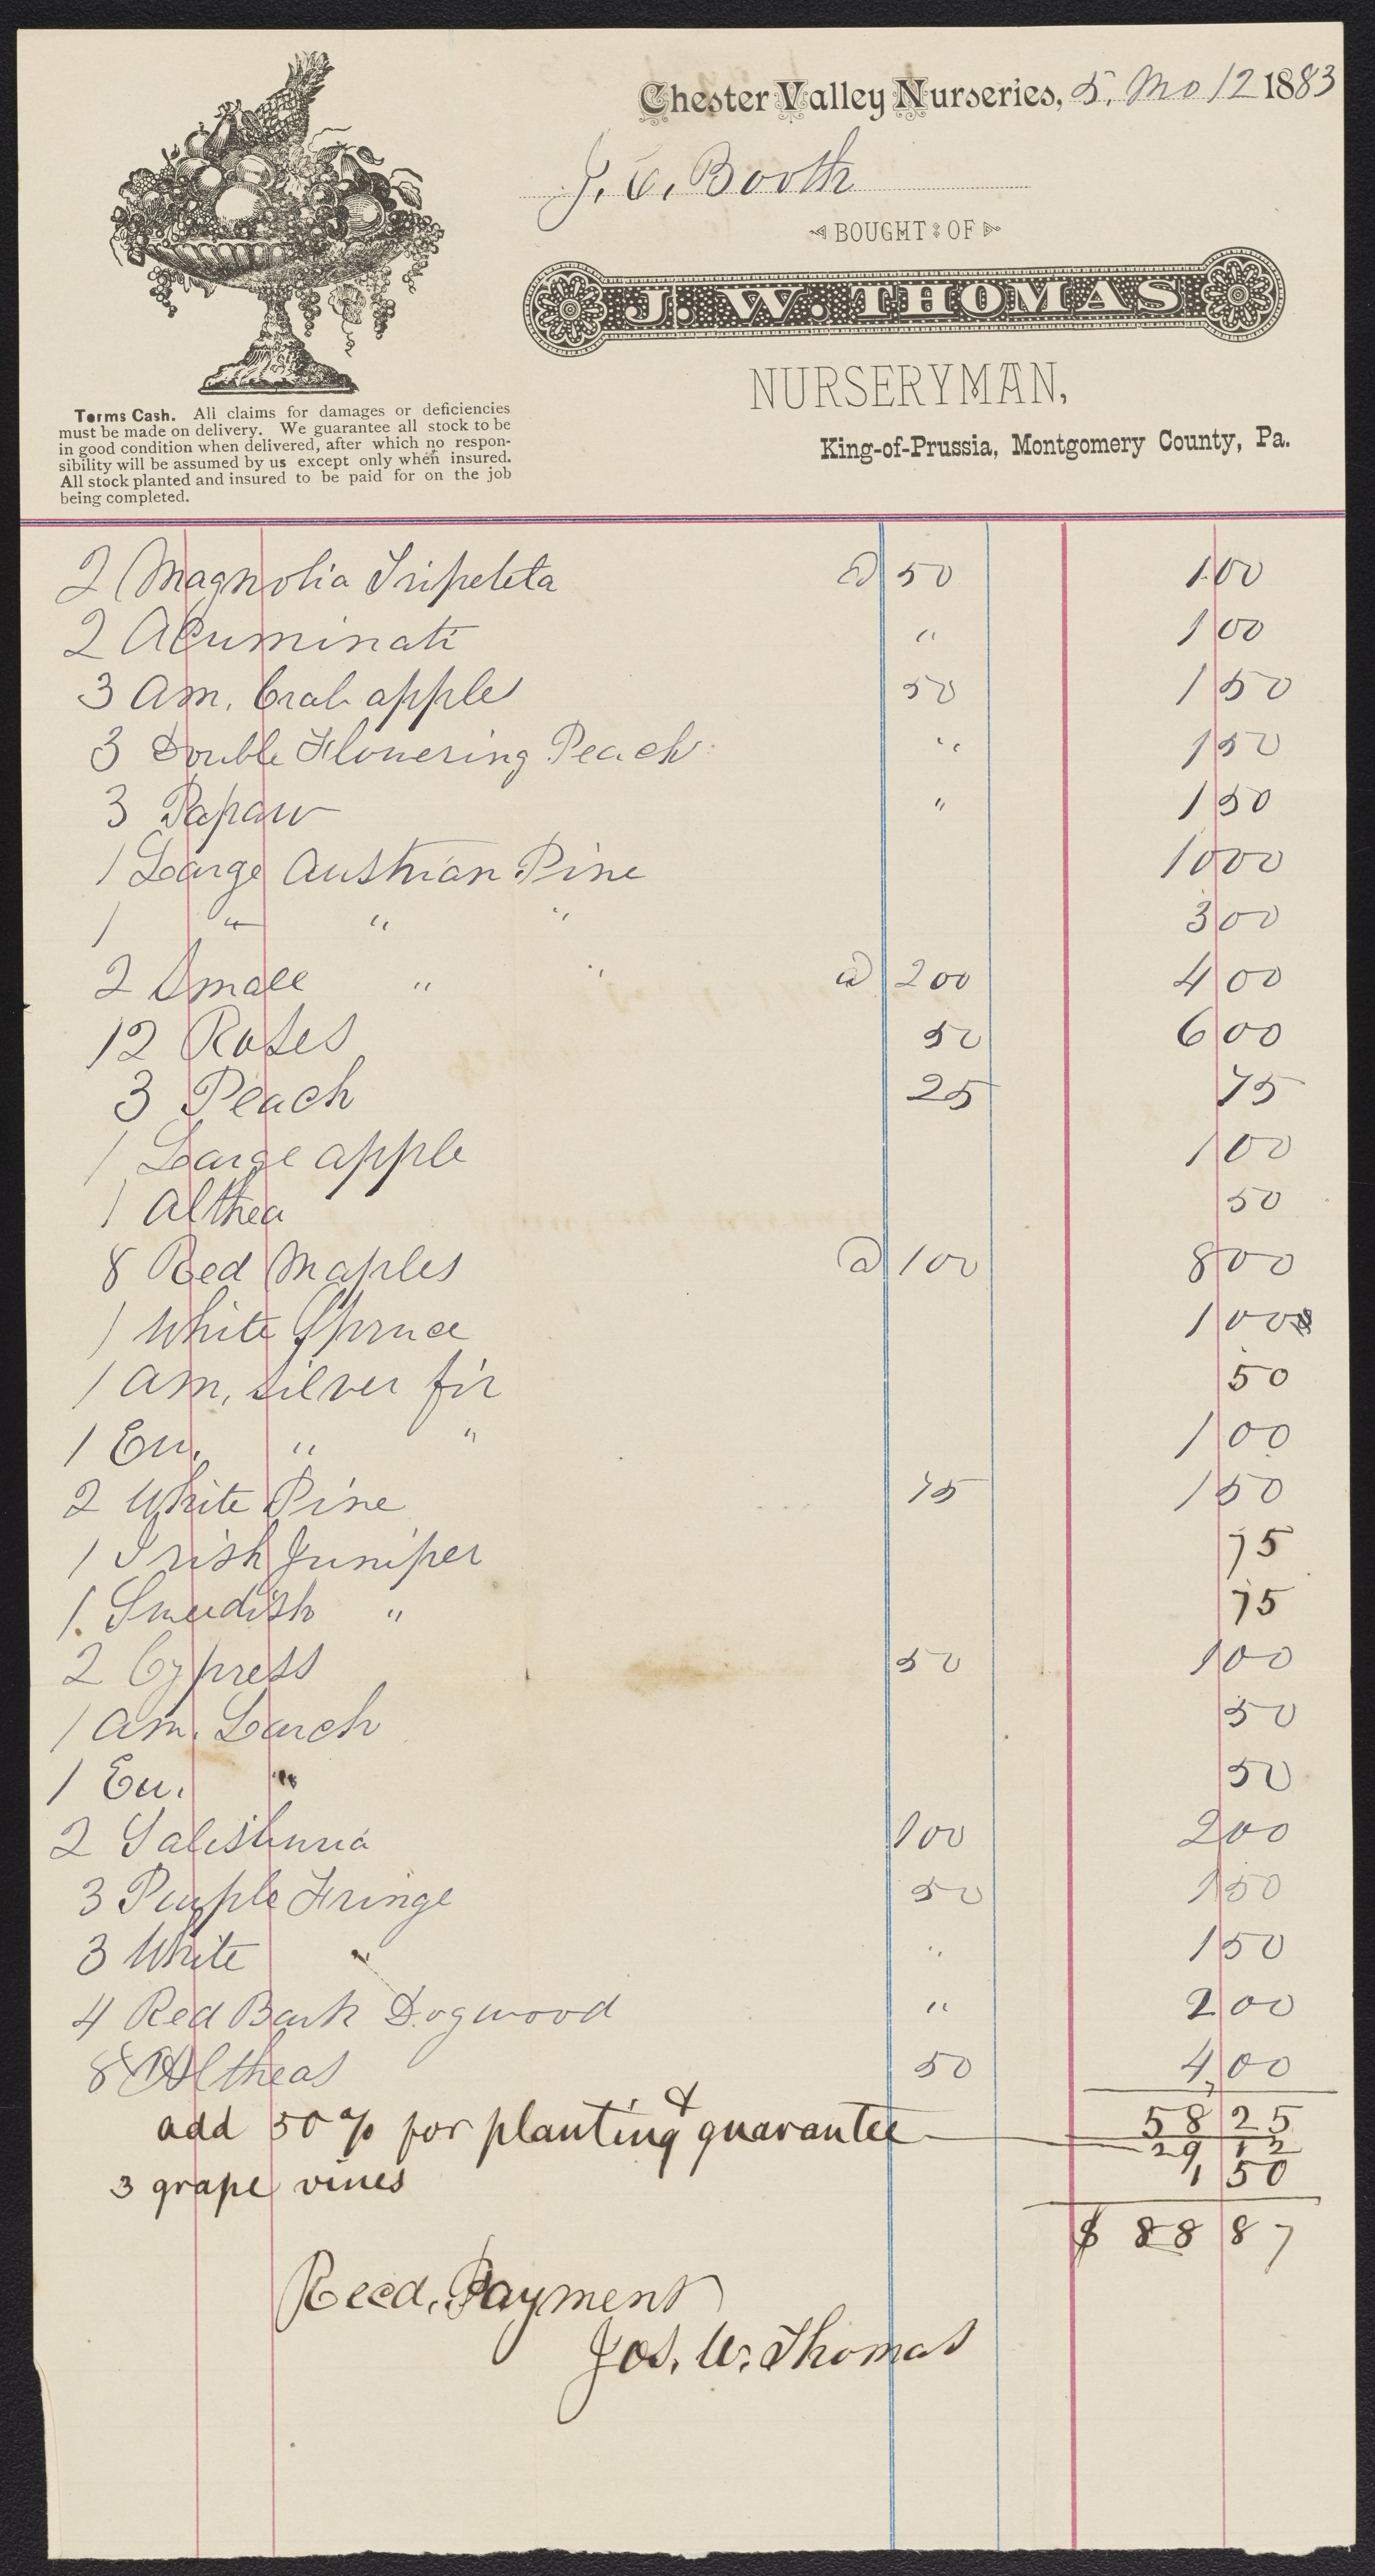 Chester Valley Nurseries, 5. Mo 12 1883
J. C. Booth
BOUGHT OF
J. W. THOMAS
NURSERYMAN,
King-of-Prussia, Montgomery County, Pa.
Terms Cash. All claims for damages or deficiencies
must be made on delivery. We guarantee all stock to be
in good condition when delivered, after which no respon-
sibility will be assumed by us except only when insured.
All stock planted and insured to be paid for on the job
being completed.
2 Magnolia Tripeleta @ 50 1.00
2 Acuminati " 1 00
3 Am. Crab apple 50 1 50
3 Double Flowering Peach " 1 50
3 Papaw " 1 50
1 Large Austrian Pine 10 00
1 " " " 3 00
2 Small " " @ 200 4 00
12 Roses 50 6 00
3 Peach 25 75
1 Large apple 1 00
1 Althea 50
8 Red Maples @ 100 8 00
1 White Spruce 1 00
1 Am. Silver fir 50
1 Eu. " " 1 00
2 White Pine 75 1 50
1 Irish Juniper 75
1. Sweedish " 75
2 Cypress 50 1 00
1 Am. Larch 50
1 Eu. " 50
2 100 2 00
3 Purple Fringe 50 1 50
3 White " " 1 50
4 Red Bark Dogwood " 2 00
8 Altheas 50 4,00
58 25
add 50 % for planting & guarantee 29 12
3 grape vines 1 50
$ 88 87
Recd. Payment
Jos. W. Thomas